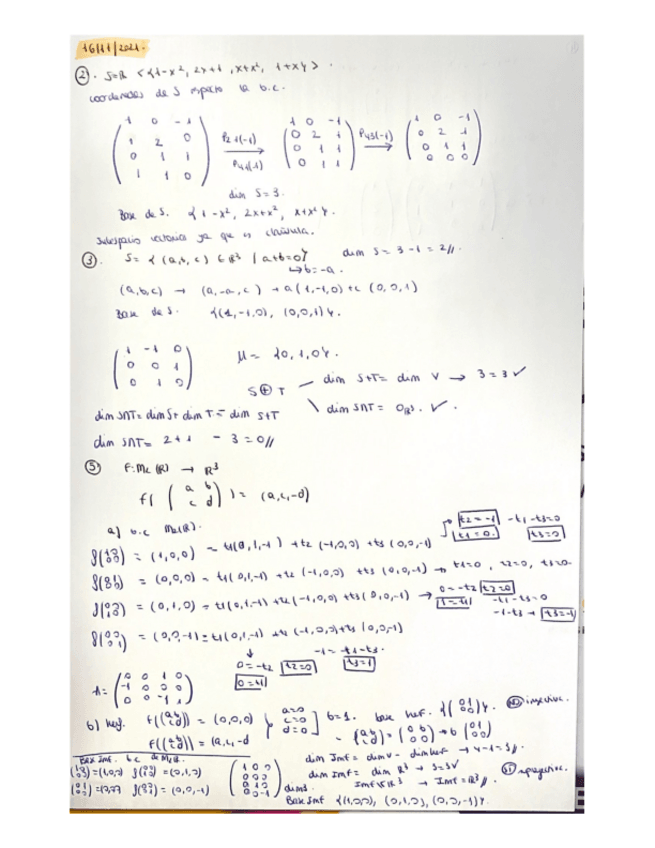 16/11/2021.
② . S=R <{1-x², 2x+1, x+x², 1+x}> .
coordenadas de S respecto la b.c.
1 0 -1 1 0 -1 1 0 -1
1 2 0 P21(-1) 0 2 1 P43(-1) 0 2 1
0 1 1 P41(-1) 0 1 1 0 1 1
1 1 0 0 1 1 0 0 0
dim S=3.
Base de S. {1-x², 2x+x², x+x²}.
Subespacio vectorial ya que es clausula.
③ S= {(a,b,c) ∈ R³ / a+b=0} dim S = 3-1=2//.
↳ b=-a.
(a,b,c) → (a,-a,c) → a(1,-1,0)+c(0,0,1)
Base de S. {(1,-1,0), (0,0,1)}.
1 -1 0
0 0 1
0 1 0
M= {0,1,0}.
S⊕T — dim S+T= dim V → 3=3 ✓
\ dim S∩T = 0R³. ✓.
dim S∩T= dim S+ dim T - dim S+T
dim S∩T= 2+1 - 3=0//
⑤ F: M2(R) → R³
f( ( a b c d ) ) = (a,c,-d)
a) b.c M2(R).
f(1 0 0 0) = (1,0,0) = t1(0,1,-1) +t2(-1,0,0) +t3(0,0,-1) t2=-1 -t1-t3=0 t1=0. t3=0
f(0 1 0 0) = (0,0,0) = t1(0,1,-1) +t2(-1,0,0) +t3(0,0,-1) → t1=0, t2=0, t3=0.
f(0 0 1 0) = (0,1,0) = t1(0,1,-1) +t2(-1,0,0)+t3(0,0,-1) → 0=-t2 t2=0 1=t1 -t1-t3=0 -1-t3 → t3=-1
f(0 0 0 1) = (0,0,-1) = t1(0,1,-1) +t2(-1,0,0)+t3(0,0,-1)
0=-t2 t2=0 -1=-t1-t3. t3=1
0=t1
A= 0 0 1 0
-1 0 0 0
0 0 -1 1
b) Kerf. f((a b c d)) = (0,0,0) a=0 c=0 d=0 b=1. base kerf. {(0 1 0 0)}. NO inyectiva.
f((a b c d)) = (a,c,-d = (a b c d) = (0 b 0 0) → b(0 1 0 0)
Base Imf. b.c de M2R.
dim Imf = dim V - dim kerf → 4-1=3//.
(1 0 0 0)=(1,0,0) f(0 0 1 0)=(0,1,0) 1 0 0
dim Imf = dim R³ → 3=3✓ SI sobreyectiva.
f(0 0 0 1) = (0,0,-1) 0 0 0
0 1 0
0 0 -1
dim3. Imf = R³//.
Base Imf {(1,0,0), (0,1,0), (0,0,-1)}.